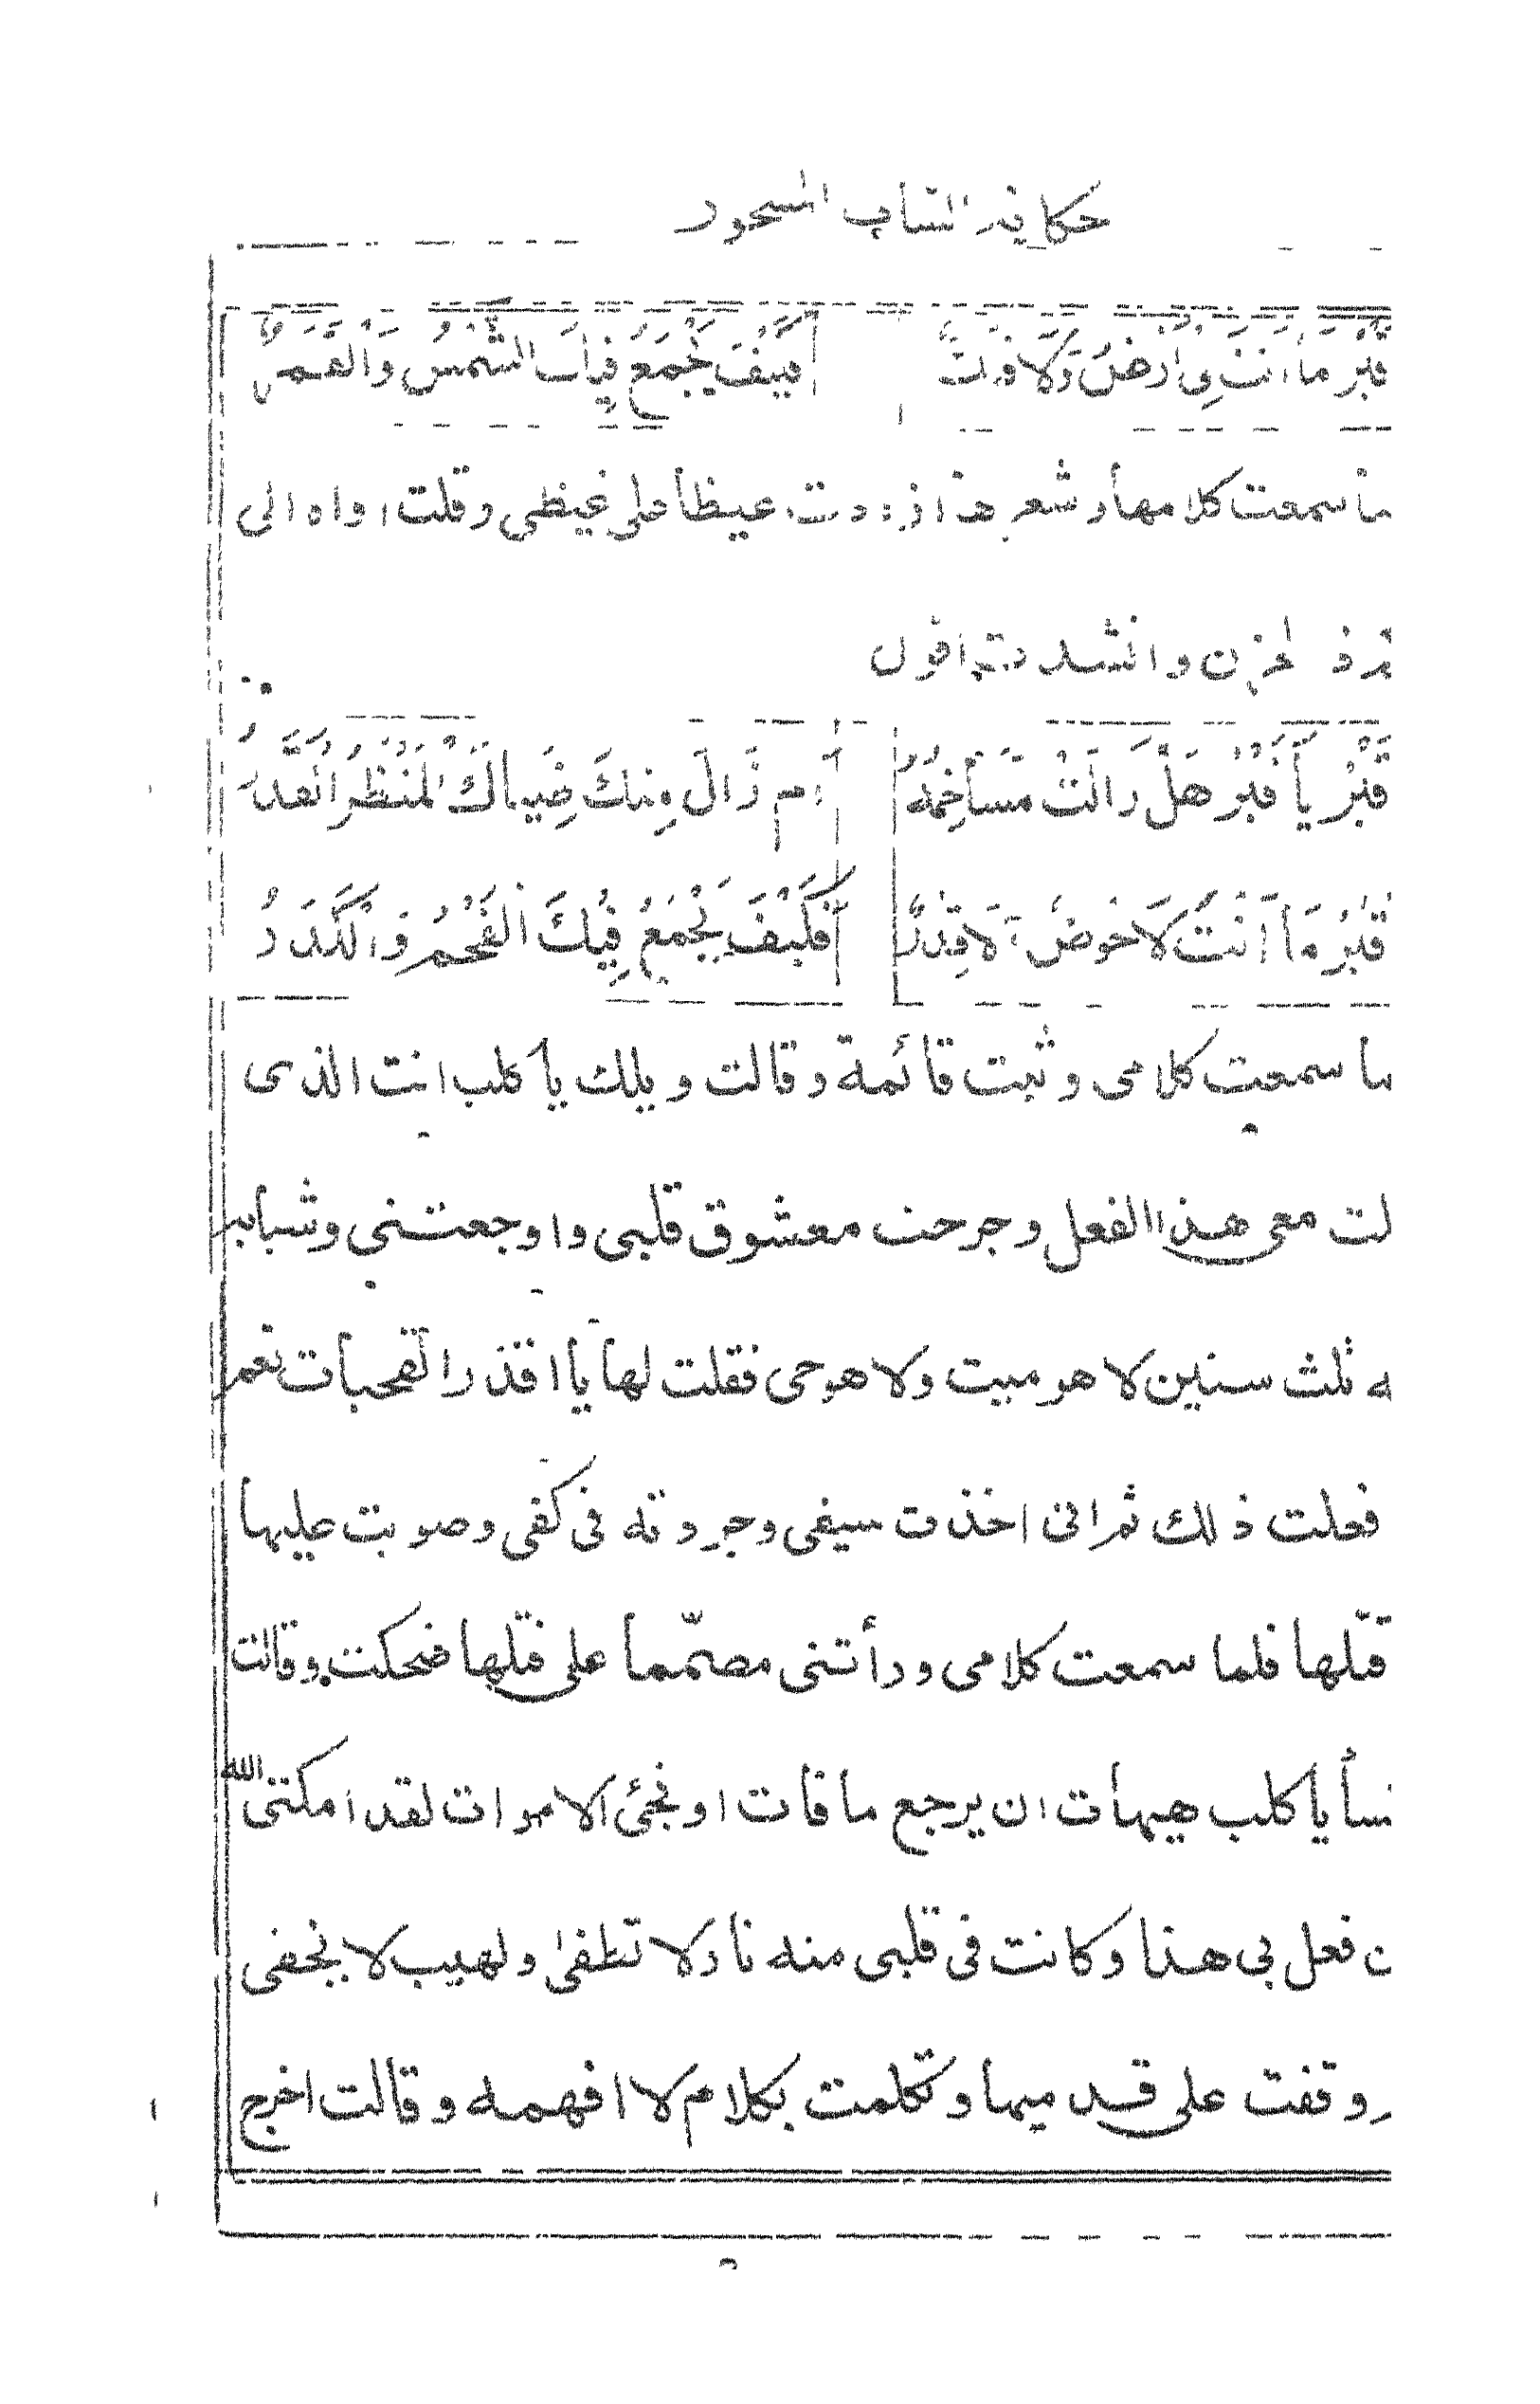 حكاية الشاب المسحور
قَبْرُ مَا أَنْتَ لِي أَرْضٌ وَلَا فَلَكٌ كَيْفَ يُجْمَعُ فِيكَ الشَّمْسُ وَالْقَمَرُ
ما سمعت كلامها وشعرها ازددت غيظا على غيظي وقلت اواه الى
الحزن وانشدت اقول
قَبْرُ يَا قَبْرُ هَلْ زَالَتْ مَسَاخِمُهُ أَمْ زَالَ مِنْكَ ضِيَاكَ الْمَنْظَرُ
قَبْرُ مَا أَنْتَ لَا حَوْضٌ وَلَا قِدْرٌ فَكَيْفَ يُجْمَعُ فِيكَ الْفَحْمُ وَالْكَدَرُ
ما سمعت كلامي وثبت قائمة وقالت ويلك يا كلب انت الذى
لت معى هذا الفعل وجرحت معشوق قلبى واوجعتنى وشبابه
له ثلث سنين لا هو ميت ولا هو حى فقلت لها يا اقذر القحبات نعم
فعلت ذلك ثم انى اخذت سيفى وجردته فى كفى وصوبت عليها
قتلها فلما سمعت كلامى ورأتنى مصمّما على قتلها ضحكت وقالت
خسأ يا كلب هيهات ان يرجع ما فات او تجئ الاموات لقد امكننى الله
ن فعل بى هذا وكانت فى قلبى منه نار لا تطفى ولهيب لا يخفى
ووقفت على قدميها وتكلمت بكلام لا افهمه وقالت اخرج